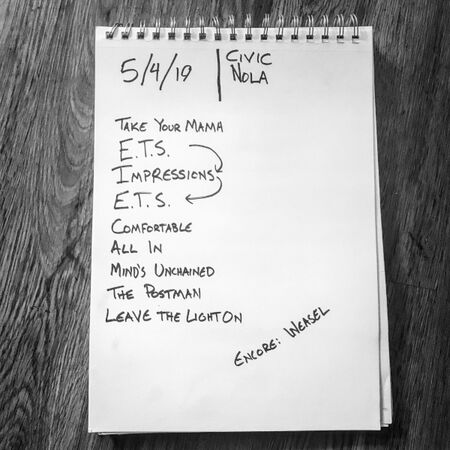 5/4/19
CIVIC
NOLA
TAKE YOUR MAMA
E.T.S.
IMPRESSIONS
E.T.S.
COMFORTABLE
ALL IN
MIND'S UNCHAINED
THE POSTMAN
LEAVE THE LIGHT ON
ENCORE: WEASEL